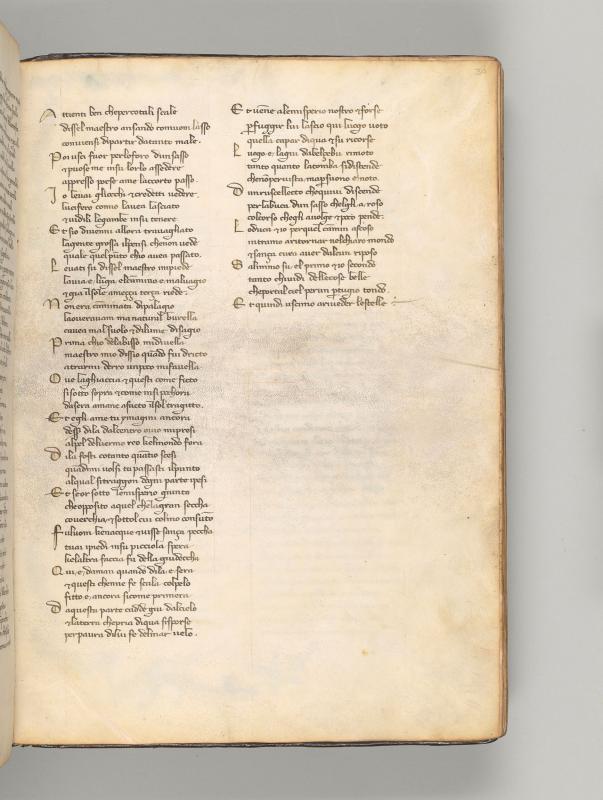 30
A ttienti ben che per cotali scale
disse l maestro ansando com uom lasso
conviensi dipartir da tanto male.
P oi usci fuor per lo foro dun sasso
& puose me insu lorlo assedere
appresso porse ame laccorto passo.
I o levai gliocchi & credetti vedere
lucifero comio lavea lasciato
& vidili le gambe insu tenere
E t sio divenni allora travagliato
la gente grossa il pensi che non vede
quale quel puto chio avea passato.
L evati su disse l maestro impiede
la via e luga el camino e malvagio
& gia il sole ameçça terça riede.
N on era caminata di palagio
la overavam ma natural burella
cavea mal suolo & di lume disagio
P rima chio de labisso mi divella
maestro mio dissio quado fui dritto
atrarmi derro un poco mi favella
O ve la ghiaccia & questi come fitto
si sotto sopra & come in si pochora
da sera amane a fatto il sol traguto.
E t egli ame tu ymagini ancora
desser di la dal centro ovio mi presi
al pel del vermo reo chel mondo fora
D i la fosti cotanto quatio scesi
quadmi volsi tu passasti il punto
al qual si traggon dogni parte i pesi
E t se or sotto lemisperio giunto
che opposito a quel che la gran seccha
coverchia & sottol cui colmo consuto
f u luom che nacque & visse sança peccha
tu ai i piedi insu picciola spera
che laltra faccia fa della giudeccha
Q ui e daman quando di la e sera
& questi che nne fe scala col pelo
fitto e ancora si come prim era
D a questa parte cadde giu dal cielo
& la terra che pria di qua si sporse
per paura di lui fe del mar velo.
E t vene a lemisperio nostro & forse
per fuggir lui lascio qui luogo voto
quella capar di qua & su ricorse
L uogo e lagiu da belçebu rimoto
tanto quanto la tomba si distende
che non per vista ma per suono e noto.
D un ruscelletto che quivi discende
per la buca dun sasso chelgli a roso
col corso chegli avolge & poco pende.
L o duca & io per quel camin ascoso
intramo aritornar nel chiaro mondo
& sança cura aver dalcun riposo
S alimmo su el primo & io secondo
tanto chividi delle cose belle
che portal ciel per un pertugio tondo.
E t quindi uscimo a riveder le stelle